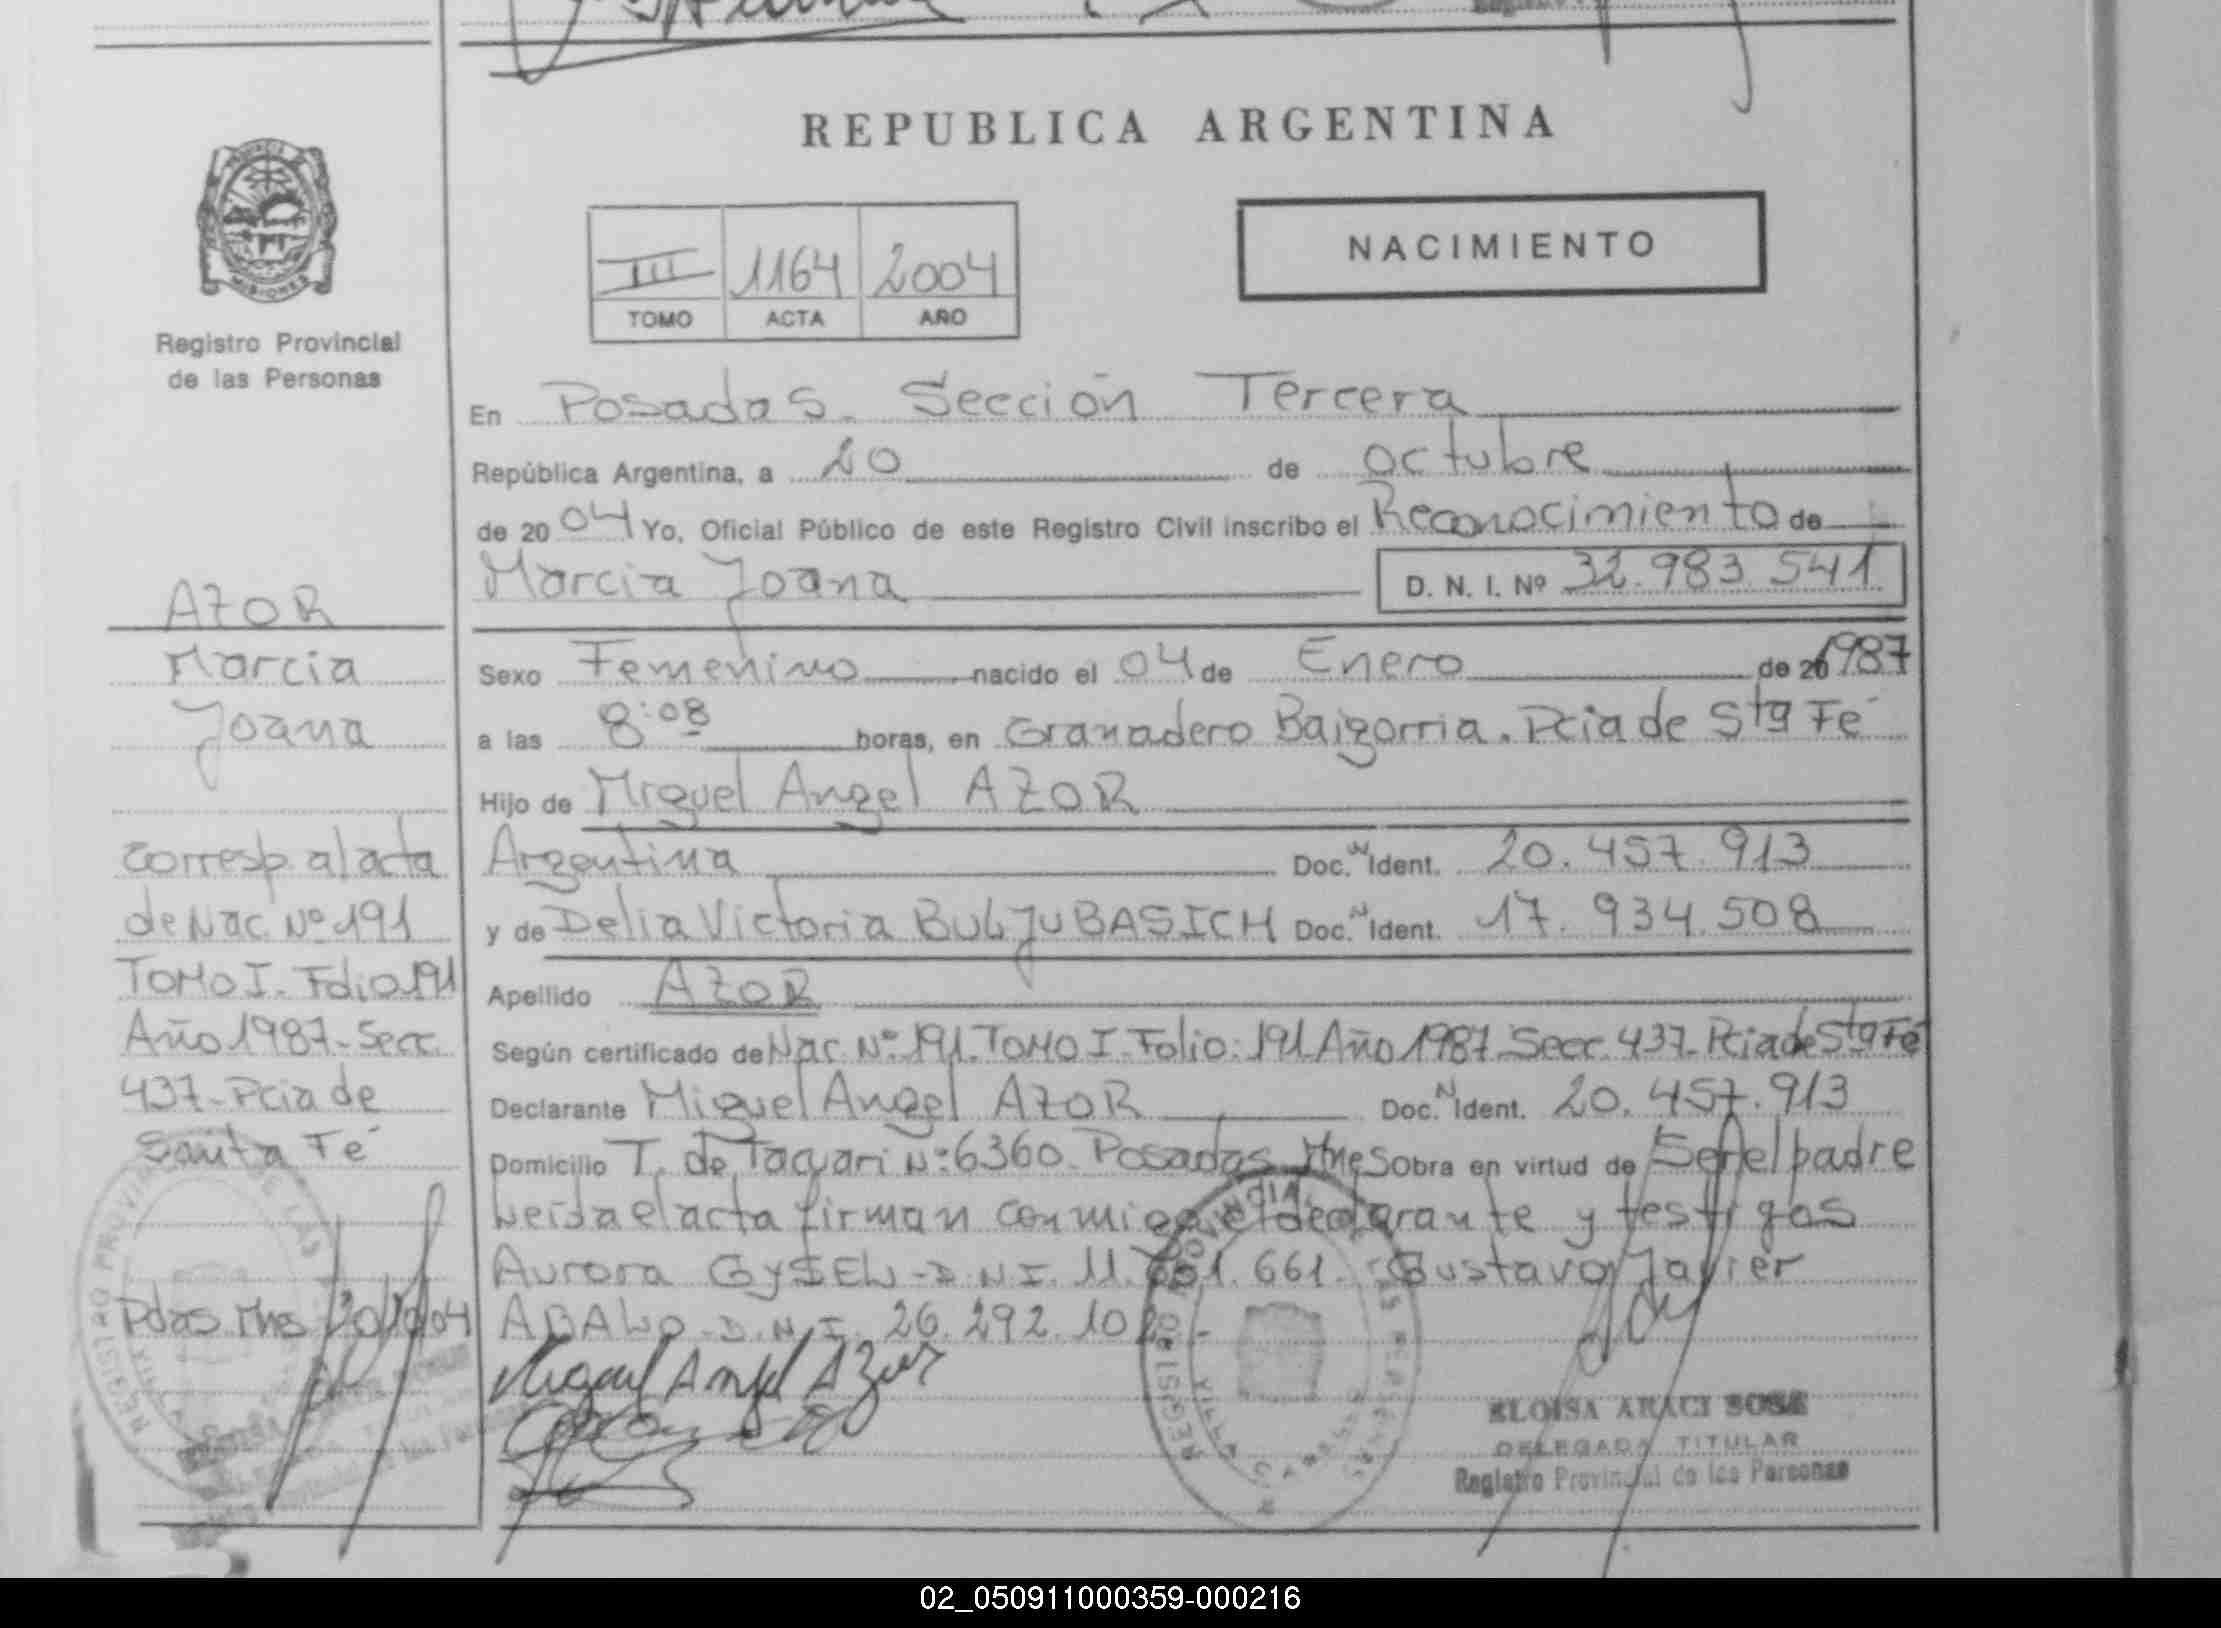 REPUBLICA ARGENTINA
NACIMIENTO
III 1164 2004
TOMO ACTA AÑO
PROVINCIA DE MISIONES
Registro Provincial
de las Personas
AZOR
Marcia
Joana
Corresp. al acta
de Nac. Nº 191
TOMO I. Folio 191
Año 1987. Secc.
437. Pcia de
Santa Fé
Pdas. Mns 20/10/04
En Posadas. Sección Tercera
República Argentina, a 20 de octubre
de 2004 Yo, Oficial Público de este Registro Civil inscribo el Reconocimiento de
Marcia Joana D. N. I. Nº 32.983.541
Sexo Femenino nacido el 04 de Enero de 20 1987
a las 8:08 horas, en Granadero Baigorria. Pcia de Sta Fé
Hijo de Miguel Angel AZOR
Argentina Doc. N Ident. 20.457.913
y de Delia Victoria BULJUBASICH Doc. N Ident. 17.934.508
Apellido AZOR
Según certificado de Nac. Nº: 191. TOMO I. Folio: 191 Año 1987. Secc. 437. Pcia de Sta Fé
Declarante Miguel Angel AZOR Doc. N Ident. 20.457.913
Domicilio T. de Tacuari Nº: 6360. Posadas. Mnes Obra en virtud de Ser el padre
Leida el acta firman conmigo el declarante y testigos
Aurora GYSEL - D.N.I. 11. 661. Gustavo Javier
ABALO - D.N.I. 26.292.10
Miguel Angel Azor
REGISTRO PROVINCIAL DE LAS PERSONAS
VILLA CABELLO
ELOISA ARACI SOSA
DELEGADA TITULAR
Registro Provincial de las Personas
02_050911000359-000216